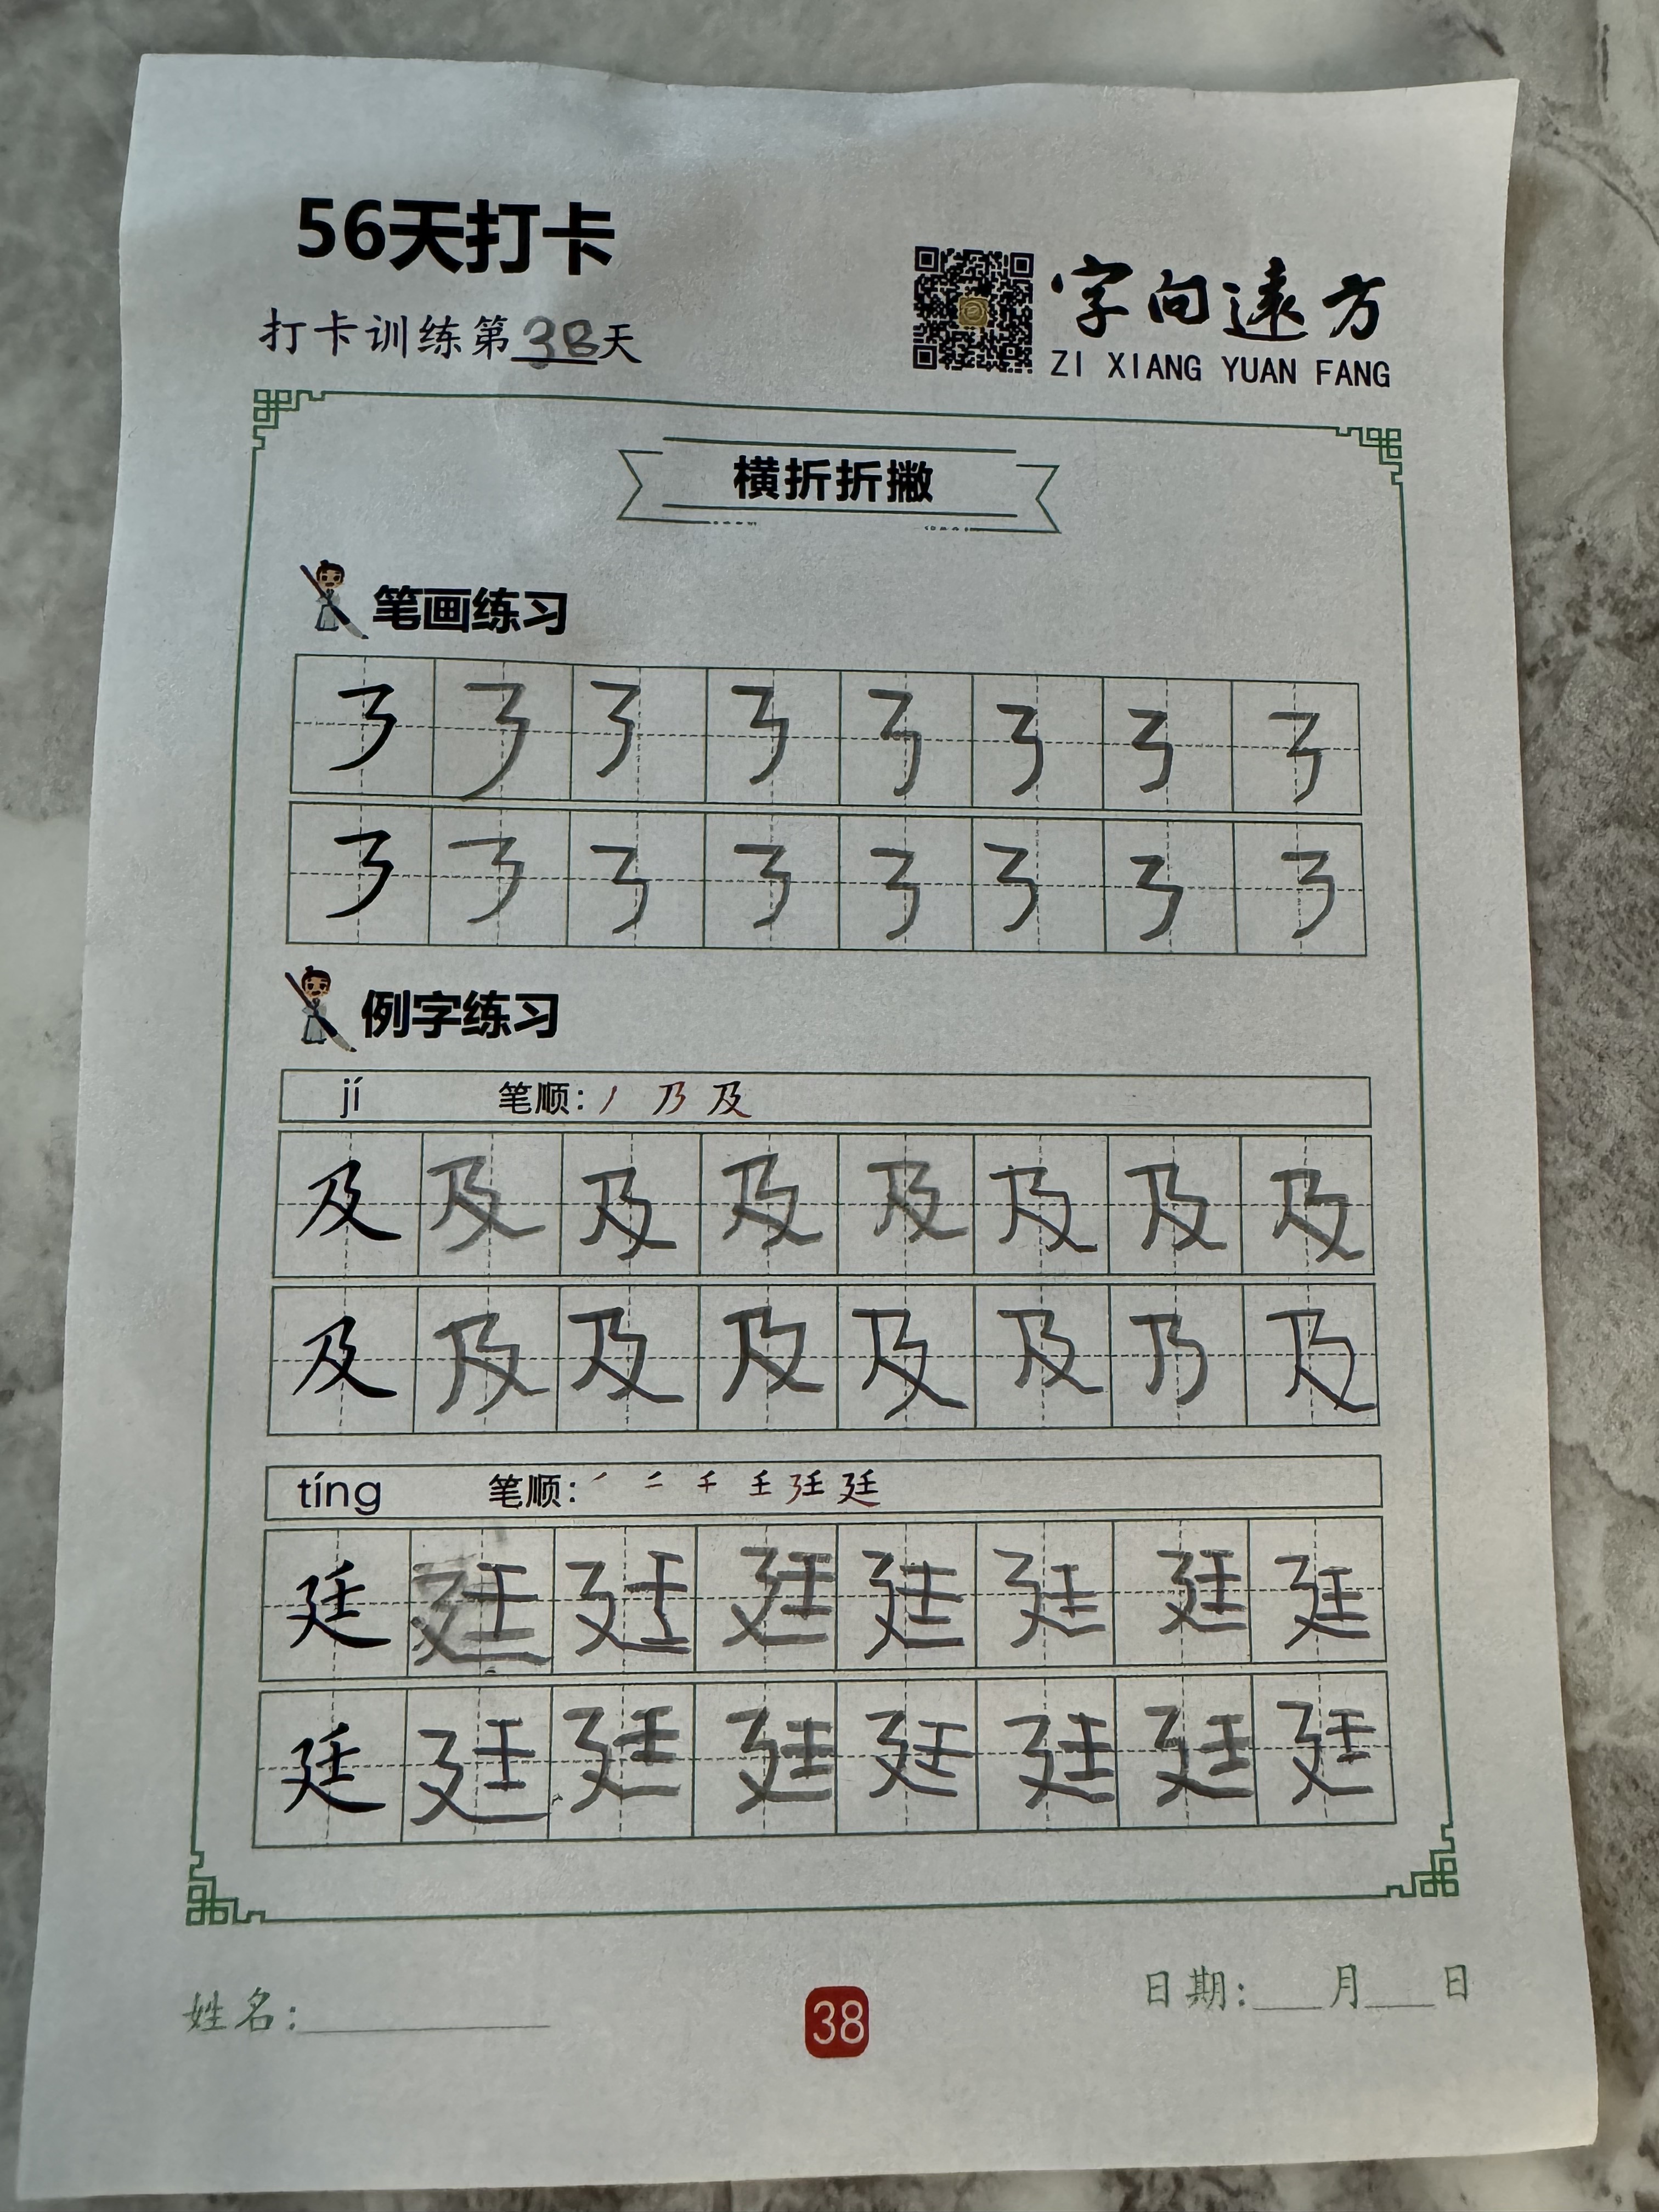 56天打卡
打卡训练第38天
字向遠方
ZI XIANG YUAN FANG
横折折撇
笔画练习
㇋ ㇋ ㇋ ㇋ ㇋ ㇋ ㇋ ㇋
㇋ ㇋ ㇋ ㇋ ㇋ ㇋ ㇋ ㇋
例字练习
jí 笔顺：丿 乃 及
及 及 及 及 及 及 及 及
及 及 及 及 及 及 乃 及
tíng 笔顺：
廷 廷 廷 廷 廷 廷 廷 廷
廷 廷 廷 廷 廷 廷 廷 廷
姓名：
38
日期：___月___日